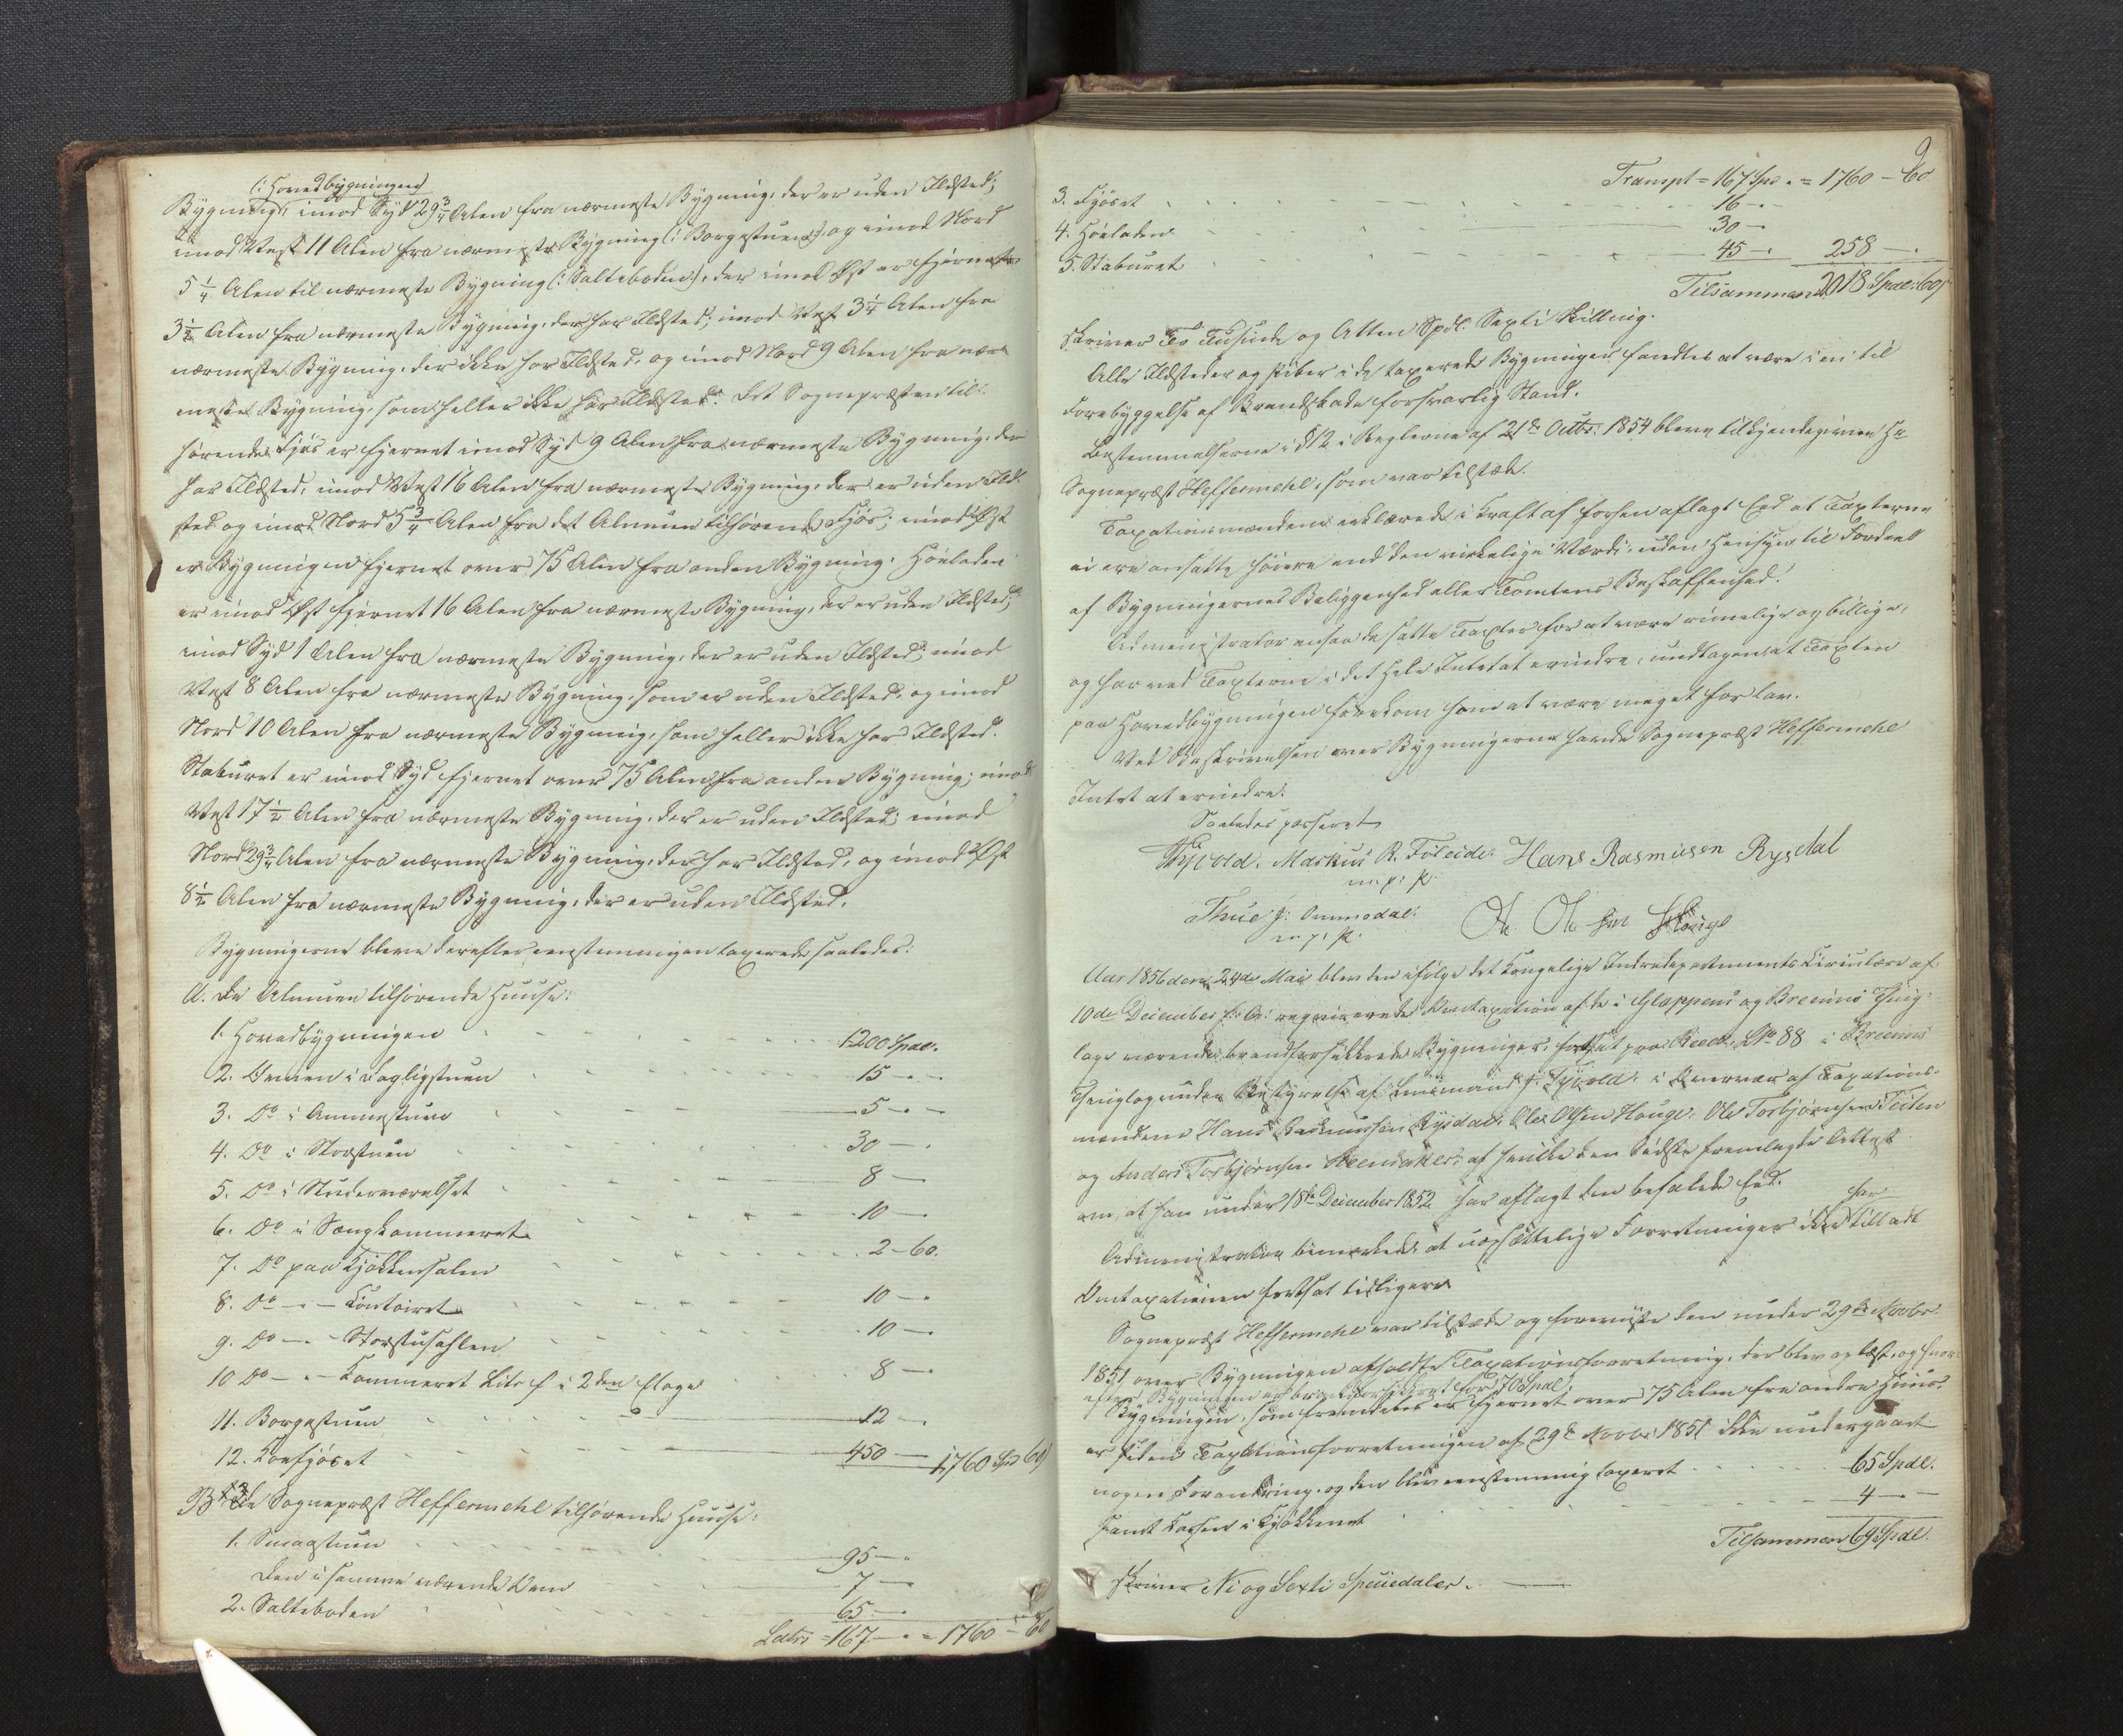 (: Hovedbygningen)
Bygning, imod Syd 29 3/4 Alen fra nærmeste Bygning, der er uden Ildsted;
imod Vest 11 Alen fra nærmeste Bygning (: Borgestuen) og imod Nord
5 1/4 Alen til nærmeste Bygning (: Salteboden), der imod Øst er fjernet
3 1/2 Alen fra nærmeste Bygning, der har Ildsted; imod Vest 3 1/4 Alen fra
nærmeste Bygning, der ikke har Ildsted, og imod Nord 9 Alen fra nær-
meste Bygning, som heller ikke har Ildsted. Det Sognepræsten til-
hørende Fjøs er fjernet imod Syd 9 Alen fra nærmeste Bygning, der
har Ildsted, imod Vest 16 Alen fra nærmeste Bygning, der er uden Ild-
sted og imod Nord 5 3/4 Alen fra det Almuen tilhørende Fjøs; imod Øst
er Bygningen fjernet over 75 Alen fra anden Bygning. Høeladen
er imod Øst fjernet 16 Alen fra nærmeste Bygning, der er uden Ildsted;
imod Syd 1 Alen fra nærmeste Bygning, der er uden Ildsted; imod
Vest 8 Alen fra nærmeste Bygning, som er uden Ildsted, og imod
Nord 10 Alen fra nærmeste Bygning, som heller ikke har Ildsted.
Staburet er imod Syd fjernet over 75 Alen fra anden Bygning; imod
Vest 17 1/2 Alen fra nærmeste Bygning, der er uden Ildsted; imod
Nord 29 3/4 Alen fra nærmeste Bygning, der har Ildsted, og imod Øst
8 1/2 Alen fra nærmeste Bygning, der er uden Ildsted.
Bygningerne bleve derefter eenstemmigen taxerede saaledes:
A. De Almuen tilhørende Huuse:
1. Hovedbygningen 1200 Spdl.
2. Ovnen i Dagligstuen 15 - -
3. Do i Ammestuen 5 - -
4. Do i Storstuen 30 - -
5. Do i Studerværelset 8 -
6. Do i Sengkammeret 10 -
7. Do paa Kjøkkensalen 2 - 60.
8. Do - - Contoiret 10 -
9. Do - - Storstusahlen 10 -
10 Do - - Kammeret Litr f i 2den Etage 8 -
11. Borgestuen 12 -
12. Koefjøset 450 - 1760 Spd 60
B. De Sognepræst Heffermehl tilhørende Huuse:
1. Smaastuen 95 -
Den i samme værende Ovn 7 -
2. Salteboden 65 -
Latus = 167 - = 1760 - 60
9
Transpt = 167 Spd = 1760 - 60
3. Fjøset 16 - -
4. Høeladen 30 -
5. Staburet 45 - 258 -
Tilsammen 2018 Spdl. 60
skriver To Tusinde og Atten Spdl. Sexti Skilling.
Alle Ildsteder og Piber i de taxerede Bygninger fandtes at være i en til
Forebyggelse af Brandskade forsvarlig Stand.
Bestemmelserne i § 12 i Reglerne af 21de Octbr. 1854 bleve tilkjendegivne Hr
Sognepræst Heffermehl, som var tilstæde.
Taxationsmændene erklærede i Kraft af forhen aflagt Eed at Taxterne
ei ere ansatte høiere end den virkelige Værdi, uden Hensyn til Fordeel
af Bygningernes Beliggenhed eller Tomtens Beskaffenhed.
Administrator ansaa de satte Taxter for at være rimelige og billige,
og har ved Taxterne i det Hele Intet at erindre, undtagen at Taxten
paa Hovedbygningen forekom ham at være meget for lav.
Ved Beskrivelsen over Bygningerne havde Sognepræst Heffermehl
Intet at erindre.
Saaledes passeret
Tyvold. Markus R. Føleide. Hans Rasmusen Rysdal
m. p: P.
Thue J: Ommedal. O. O. Sen Houge
m. p: P.
Aar 1856 den 24de Mai blev den ifølge det Kongelige Indredepartements Circulære af
10de December f. A. reqvirerede Omtaxation af de i Gloppens og Breims Thing-
lage værende brandforsikkrede Bygninger, fortsat paa Reed, No 88 i Breims
Thinglag under Bestyrelse af Lensmand J. Tyvold, i Overvær af Taxations-
mændene Hans Rasmussen Rysdal, Ole Olsen Houge, Ole Torbjørnsen
og Anders Torbjørnsen af hvilke den Sidste fremlagde Attest
om, at han under 18de December 1852 har aflagt den befalede Eed.
Administrator bemærkede at uopsættelige Forretninger ikke har tilladt
Omtaxationen fortsat tidligere.
Sognepræst Heffermehl var tilstæde og foreviiste den under 29de Novbr.
1851 over Bygningen afholdte Taxationsforretning, der blev oplæst, og hvor-
efter Bygningen er brandforsikkret for 70 Spdl.
Bygningen, som fremdeles er fjernet over 75 Alen fra andre Huus,
er siden Taxationsforretningen af 29de Novbr 1851 ikke undergaaet
nogen Forandring, og den blev eenstemmig taxeret 65 Spdl.
samt Ovnen i Kjøkkenet 4 - -
Tilsammen 69 Spdl.
skriver Ni og Sexti Speciedaler.